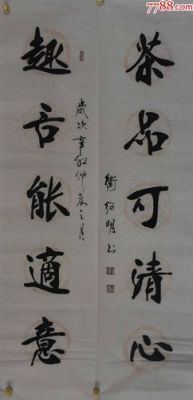 7788.com
茶品可清心
衛紹明书
趣言能適意
歲次辛卯仲夏之月